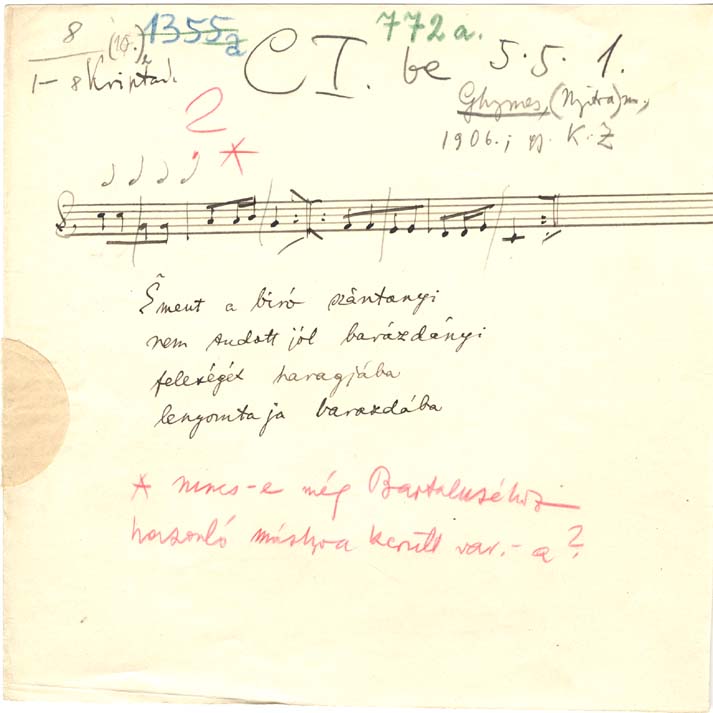 8 (10.) 1355 a 772 a.
1–8 CI. be 5.5. 1.
Ghymes, (Nyitra) m.,
1906.; gy. K. Z
2
*
Ēment a biró szántanyi
nem tudott jól barázdányi
feleségét haragjába
lenyomta ja barazdába
* nincs-e még Bartaluséhoz
hasonló máshova került var.-a?